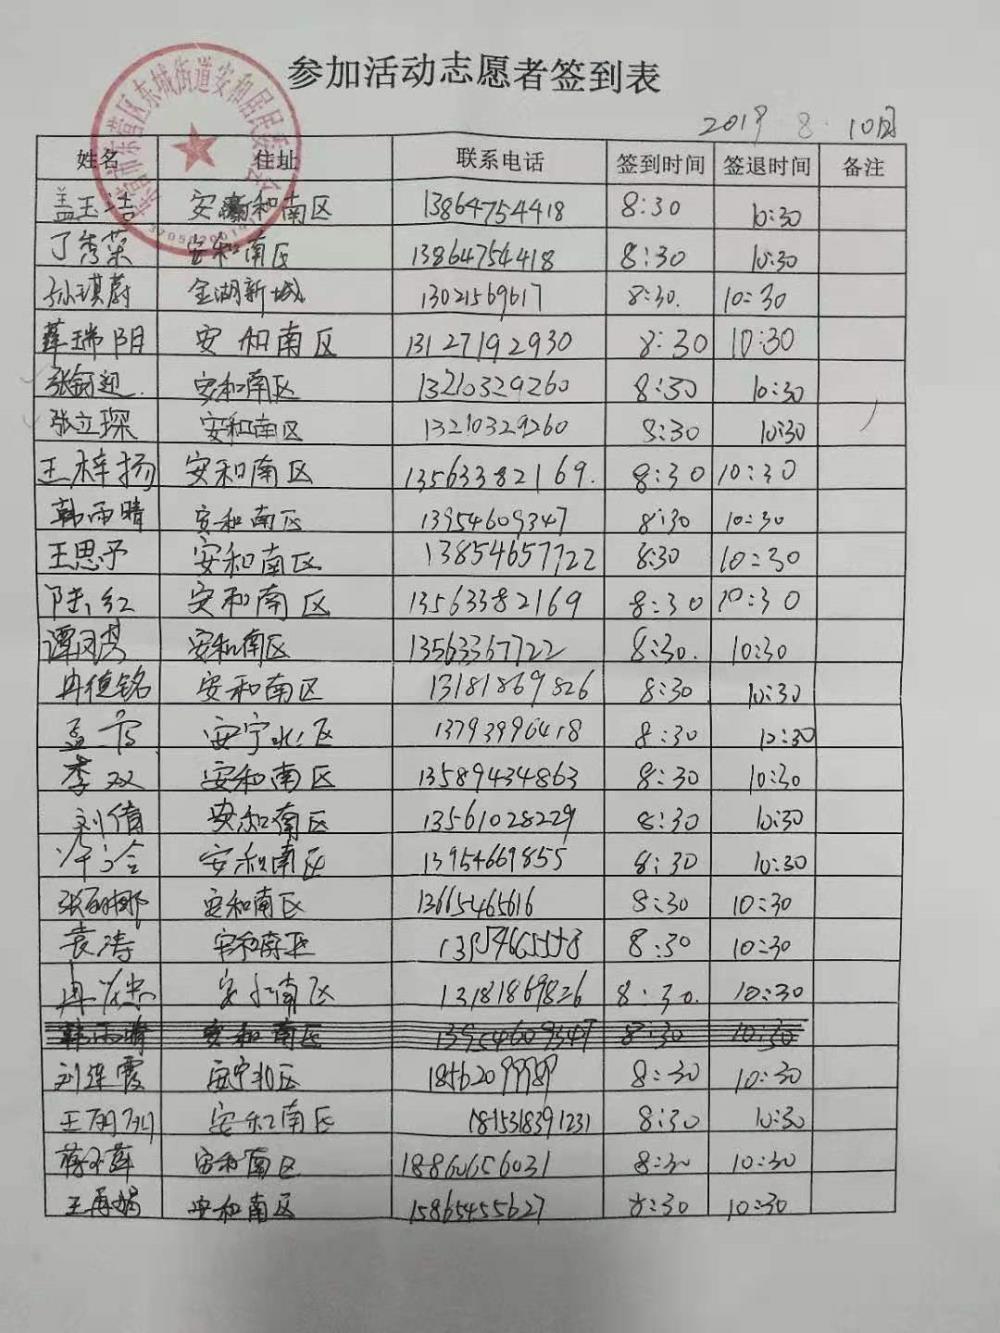 参加活动志愿者签到表
2019 8.10日
姓名 住址 联系电话 签到时间 签退时间 备注
盖玉洁 安和南区 13864754418 8:30 10:30
丁秀荣 安和南区 13864754418 8:30 10:30
孙琪蔚 金湖新城 13021569617 8:30. 10:30
薛瑞阳 安和南区 13127192930 8:30 10:30
张钰迎 安和南区 13210329260 8:30 10:30
张立琛 安和南区 13210329260 8:30 10:30
王梓扬 安和南区 13563382169. 8:30 10:30
韩雨晴 安和南区 13954609347 8:30 10:30
王思予 安和南区 13854657722 8:30 10:30
陆红 安和南区 13563382169 8:30 10:30
谭凤琴 安和南区 13563367722 8:30. 10:30
冉德铭 安和南区 13181869826 8:30 10:30
孟 安宁北区 13793996418 8:30 10:30
李双 安和南区 13589434863 8:30 10:30
刘倩 安和南区 13561028229 8:30 10:30
安和南区 13954669855 8:30 10:30
张丽娜 安和南区 13665465616 8:30 10:30
袁涛 安和南区 8:30 10:30
冉 安和南区 13181869826 8:30. 10:30
韩雨晴 安和南区 13954609347 8:30 10:30
刘连霞 安宁北区 18562099989 8:30 10:30
王 安和南区 1815318391231 8:30 10:30
蒋 萍 安和南区 18860656031 8:30 10:30
王再娟 安和南区 15865455627 8:30 10:30